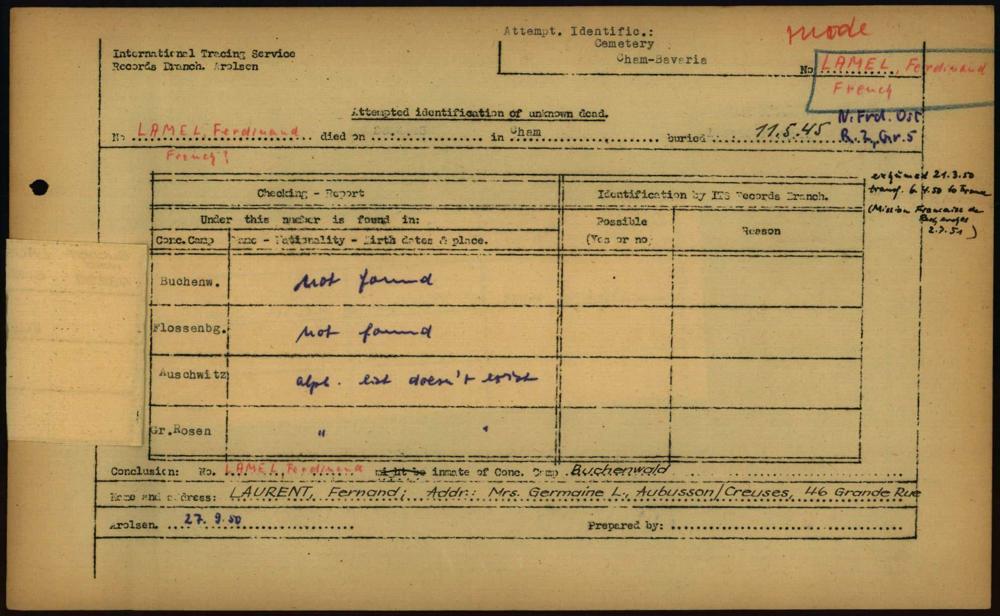 Attempt. Identific.:
Cemetery
Cham-Bavaria
International Tracing Service
Records Branch. Arolsen
No LAMEL, Ferdinand
French
Attempted identification of unknown dead.
No LAMEL, Ferdinand died on in Cham buried 11.5.45 N. Frd. Ost
R. 2, Gr. 5
French?
exhumed 21.3.50
transf. 6.4.50 to France
(Mission Francaise de
Recherches
2.7.51)
Checking - Report
Identification by ITS Records Branch.
Under this number is found in:
Possible
(Yes or no)
Reason
Conc. Camp
Name - Nationality - Birth dates & place.
Buchenw. not found
Flossenbg. not found
Auschwitz alph. list doesn't exist
Gr.Rosen " "
Conclusion: No. LAMEL, Ferdinand might be inmate of Conc. Camp Buchenwald
Name and address: LAURENT, Fernand; Addr.: Mrs. Germaine L., Aubusson/Creuses, 46 Grande Rue
Arolsen. 27. 9. 50 Prepared by: